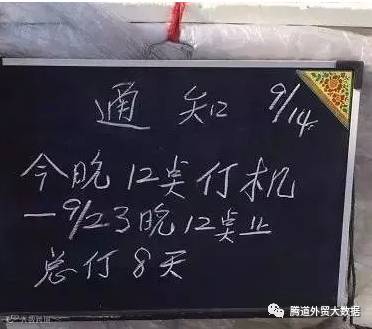 通知 9/14
今晚12点仃机
—9/23晚12点止
总仃8天
腾道外贸大数据